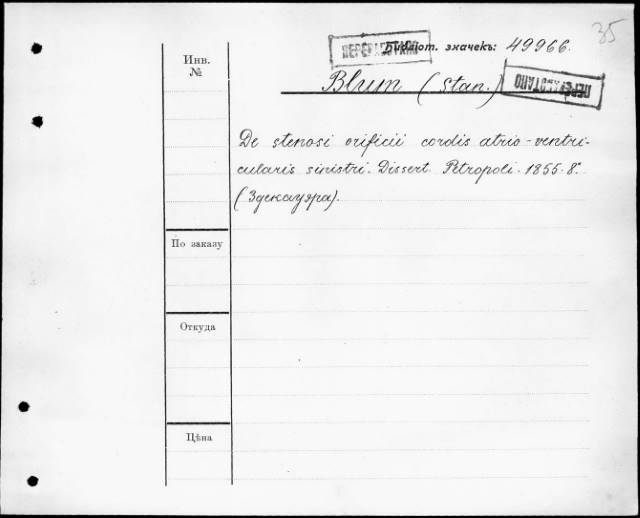 35
ПЕРЕРАБОТАНО
Библіот. значекъ: 49966.
Инв.
№
Blum (Stan.)
ПЕРЕРАБОТАНО
De stenosi orificii cordis atrio-ventri-
cularis sinistri. Dissert. Petropoli. 1855. 8°.
(Здекауэра).
По заказу
Откуда
Цѣна